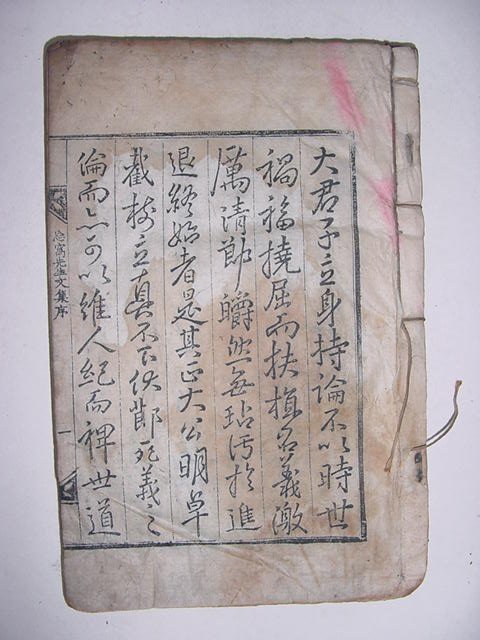 大君子立身持論不以時世
禍福撓屈而扶植名義激
厲清節皭然無玷汚於進
退終始者是其正大公明卓
截樹立真不下伏節死義之
倫而亦可以維人紀而裨世道
窩先生文集序
一